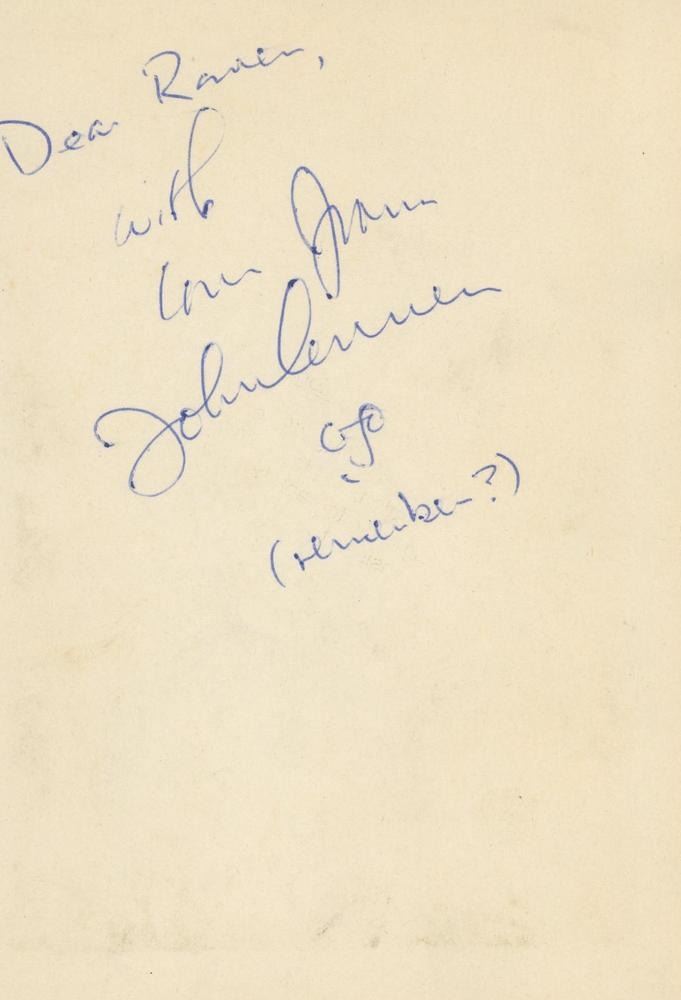 Dear Raven,
with
love from
John Lennon
(remember?)